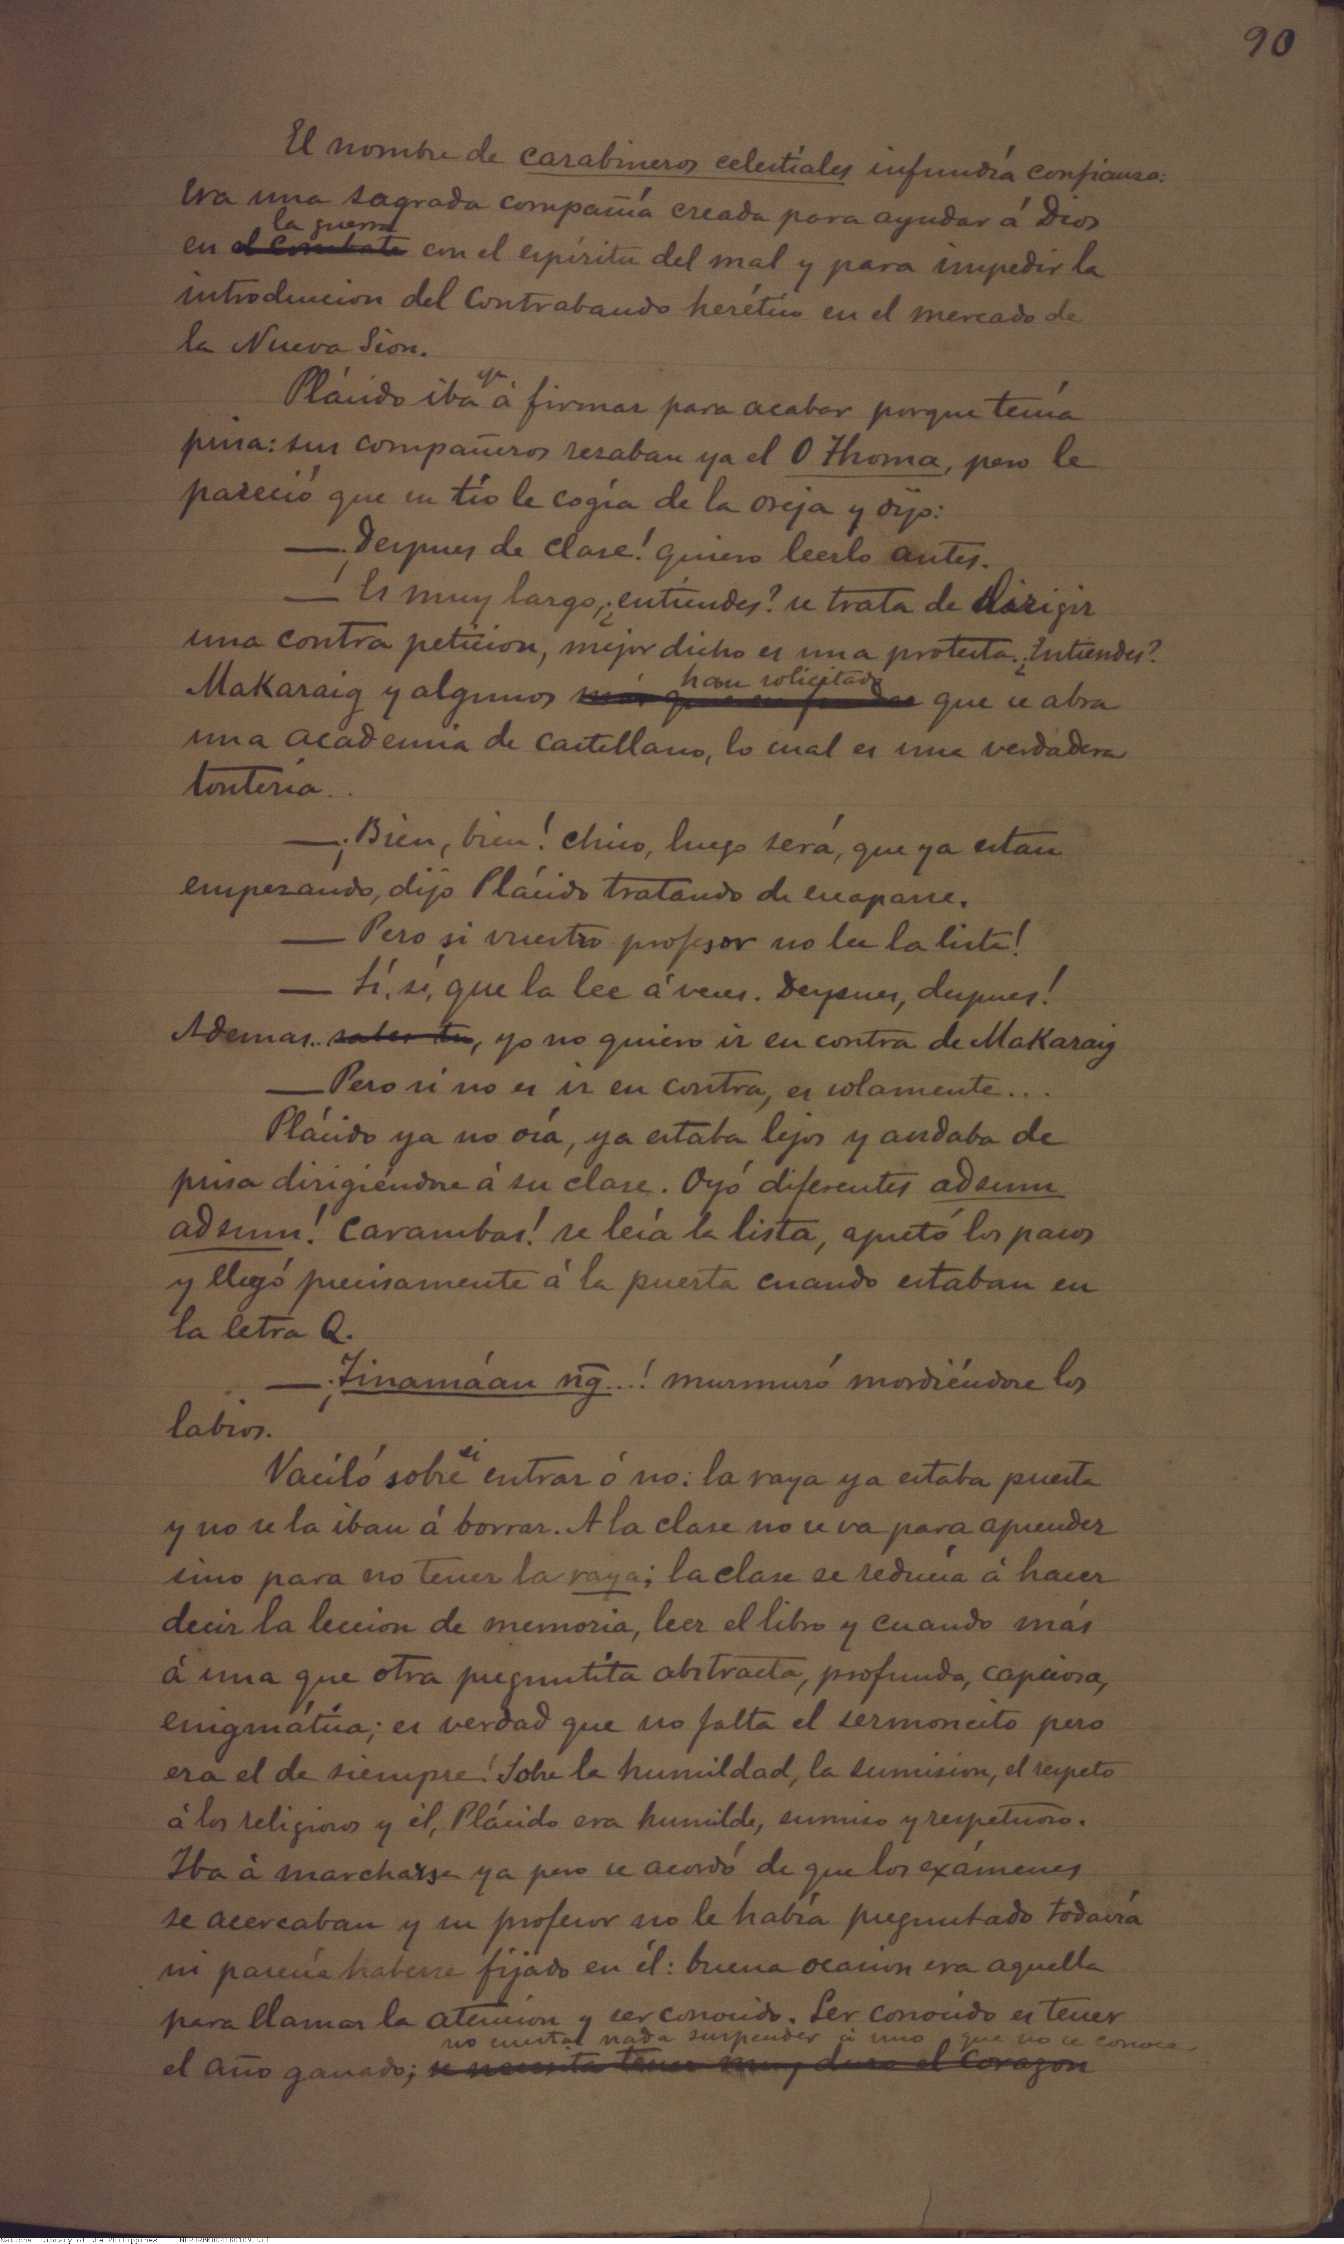 90
El nombre de carabineros celestiales infundía confianza:
Era una sagrada compañía creada para ayudar á Dios
la guerra
en el combate con el espíritu del mal y para impedir la
introduccion del contrabando herético en el mercado de
la Nueva Sion.
ya
Plácido iba á firmar para acabar porque tenía
prisa: sus compañeros rezaban ya el O Thoma, pero le
pareció que su tío le cogía de la oreja y dijo:
—¡Despues de clase! quiero leerlo antes.
— Es muy largo, ¿entiendes? se trata de dirigir
una contra peticion, mejor dicho es una protesta. ¿Entiendes?
han solicitado
Makaraig y algunos que se abra
una academia de castellano, lo cual es una verdadera
tontería..
—¡Bien, bien! chico, luego será, que ya estan
empezando, dijo Plácido tratando de escaparse.
— Pero si vuestro profesor no lee la lista!
— Sí, sí, que la lee á veces. Despues, despues!
Ademas.. saber tu, yo no quiero ir en contra de Makaraig
— Pero si no es ir en contra, es solamente...
Plácido ya no oía, ya estaba lejos y andaba de
prisa dirigiéndose á su clase. Oyó diferentes adsum
adsum! Carambas! se leía la lista, apretó los pasos
y llegó precisamente á la puerta cuando estaban en
la letra Q.
—¡Tinamáan ñg...! murmuró mordiéndose los
labios.
si
Vaciló sobre entrar ó no: la raya ya estaba puesta
y no se la iban á borrar. A la clase no se va para aprender
sino para no tener la raya; la clase se reducía á hacer
decir la leccion de memoria, leer el libro y cuando más
á una que otra preguntita abstracta, profunda, capciosa,
enigmática; es verdad que no falta el sermoncito pero
era el de siempre! Sobre la humildad, la sumision, el respeto
á los religiosos y él, Plácido era humilde, sumiso y respetuoso.
Iba á marcharse ya pero se acordó de que los exámenes
se acercaban y su profesor no le había preguntado todavía
ni parecía haberse fijado en él: buena ocasion era aquella
para llamar la atencion y ser conocido. Ser conocido es tener
no cuesta nada suspender á uno que no se conoce
el año ganado; se necesita tener muy duro el corazon